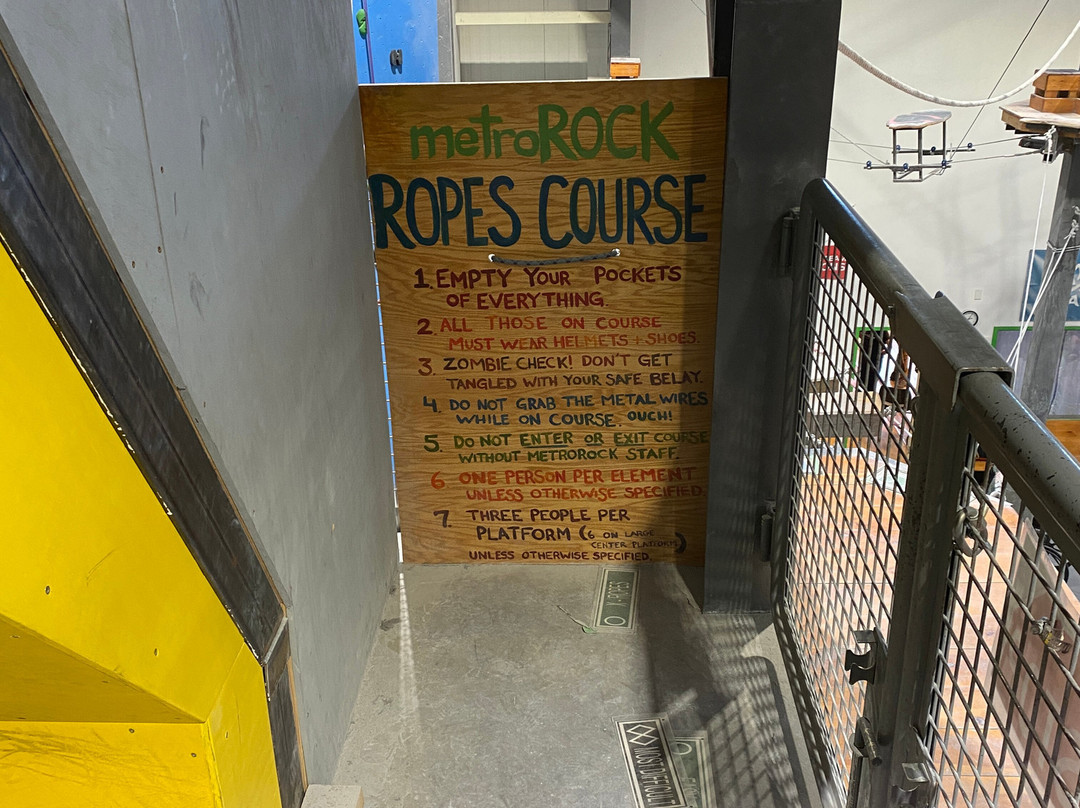 metroROCK
ROPES COURSE
1. EMPTY YOUR POCKETS
OF EVERYTHING.
2. ALL THOSE ON COURSE
MUST WEAR HELMETS + SHOES.
3. ZOMBIE CHECK! DON'T GET
TANGLED WITH YOUR SAFE BELAY.
4. DO NOT GRAB THE METAL WIRES
WHILE ON COURSE. OUCH!
5. DO NOT ENTER OR EXIT COURSE
WITHOUT METROROCK STAFF.
6. ONE PERSON PER ELEMENT
UNLESS OTHERWISE SPECIFIED.
7. THREE PEOPLE PER
PLATFORM (6 ON LARGE
CENTER PLATFORM)
UNLESS OTHERWISE SPECIFIED.
MOST DIFFICULT